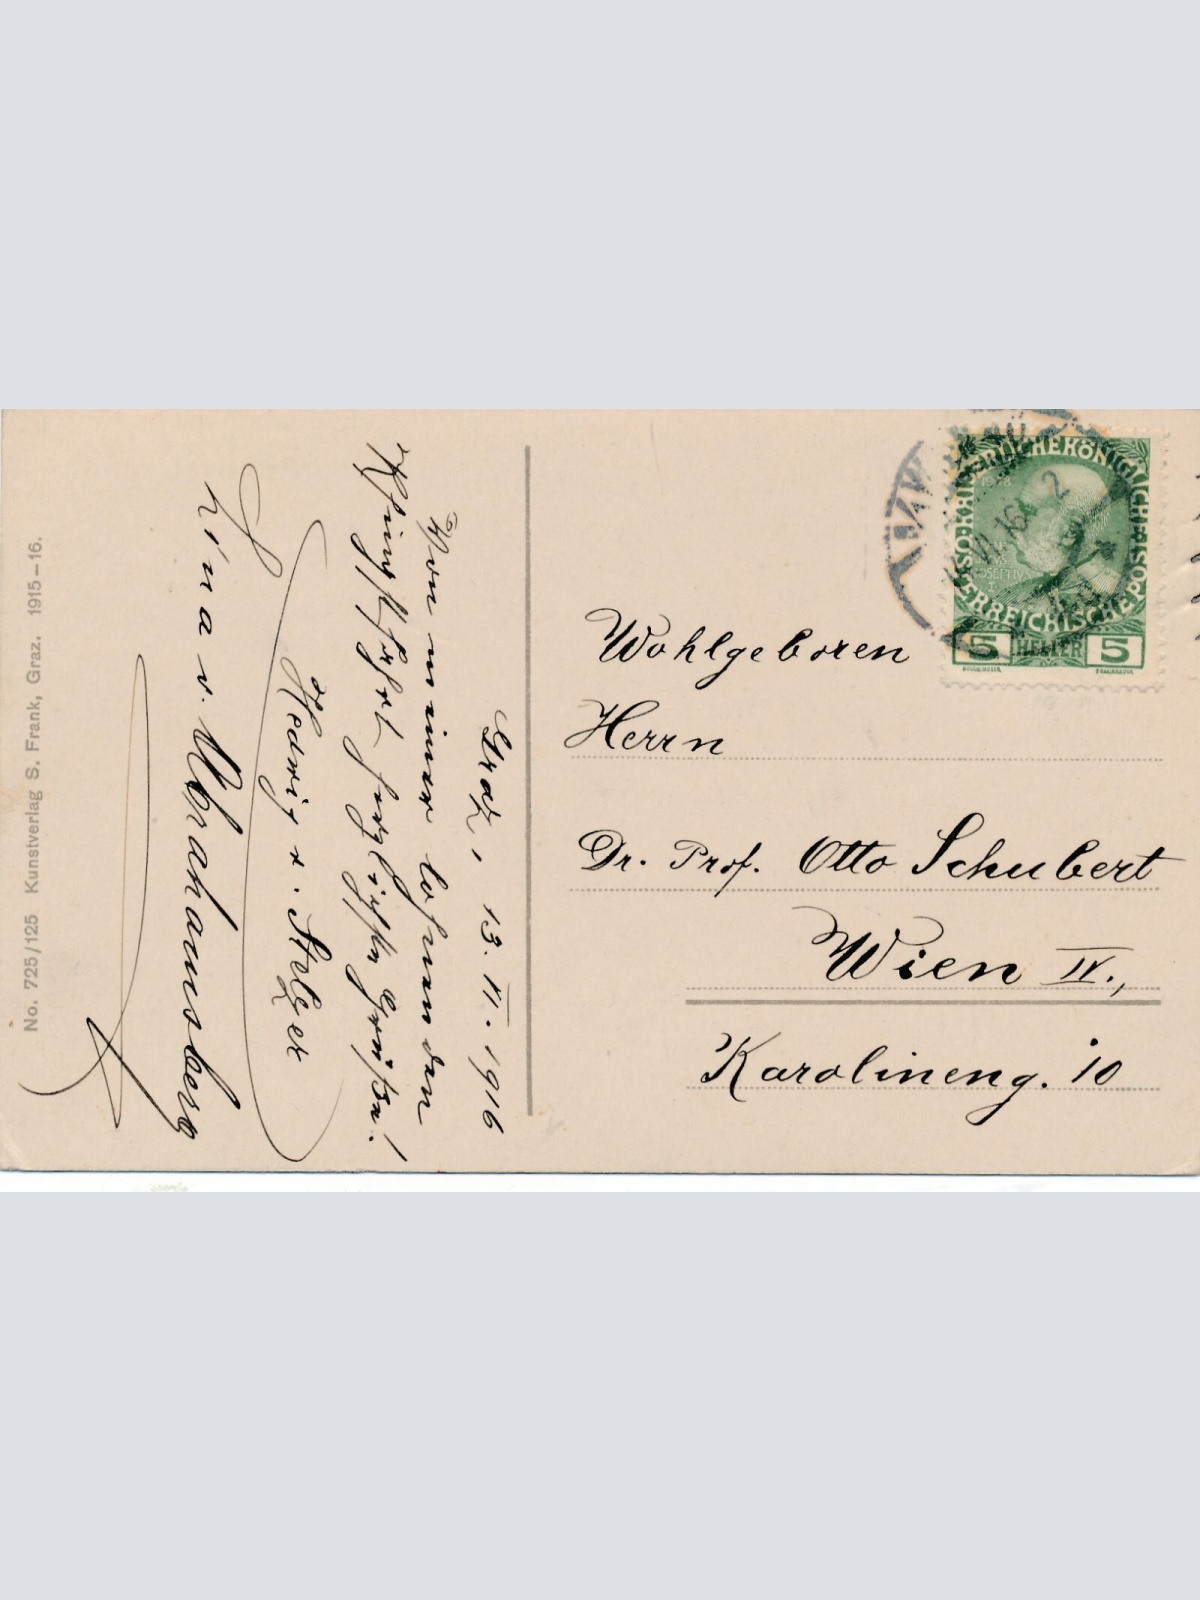 Graz, 13. VI. 1916
Von einer lohnenden
herzlichste Grüße!
Hedwig v. Stelzer
Lina v. Abrahamsberg
Wohlgeboren
Herrn
Dr. Prof. Otto Schubert
Wien IV.,
Karolineng. 10
No. 725/125 Kunstverlag S. Frank, Graz. 1915–16.
KAISERLICHE KÖNIGLICHE ÖSTERREICHISCHE POST
5 HELLER 5